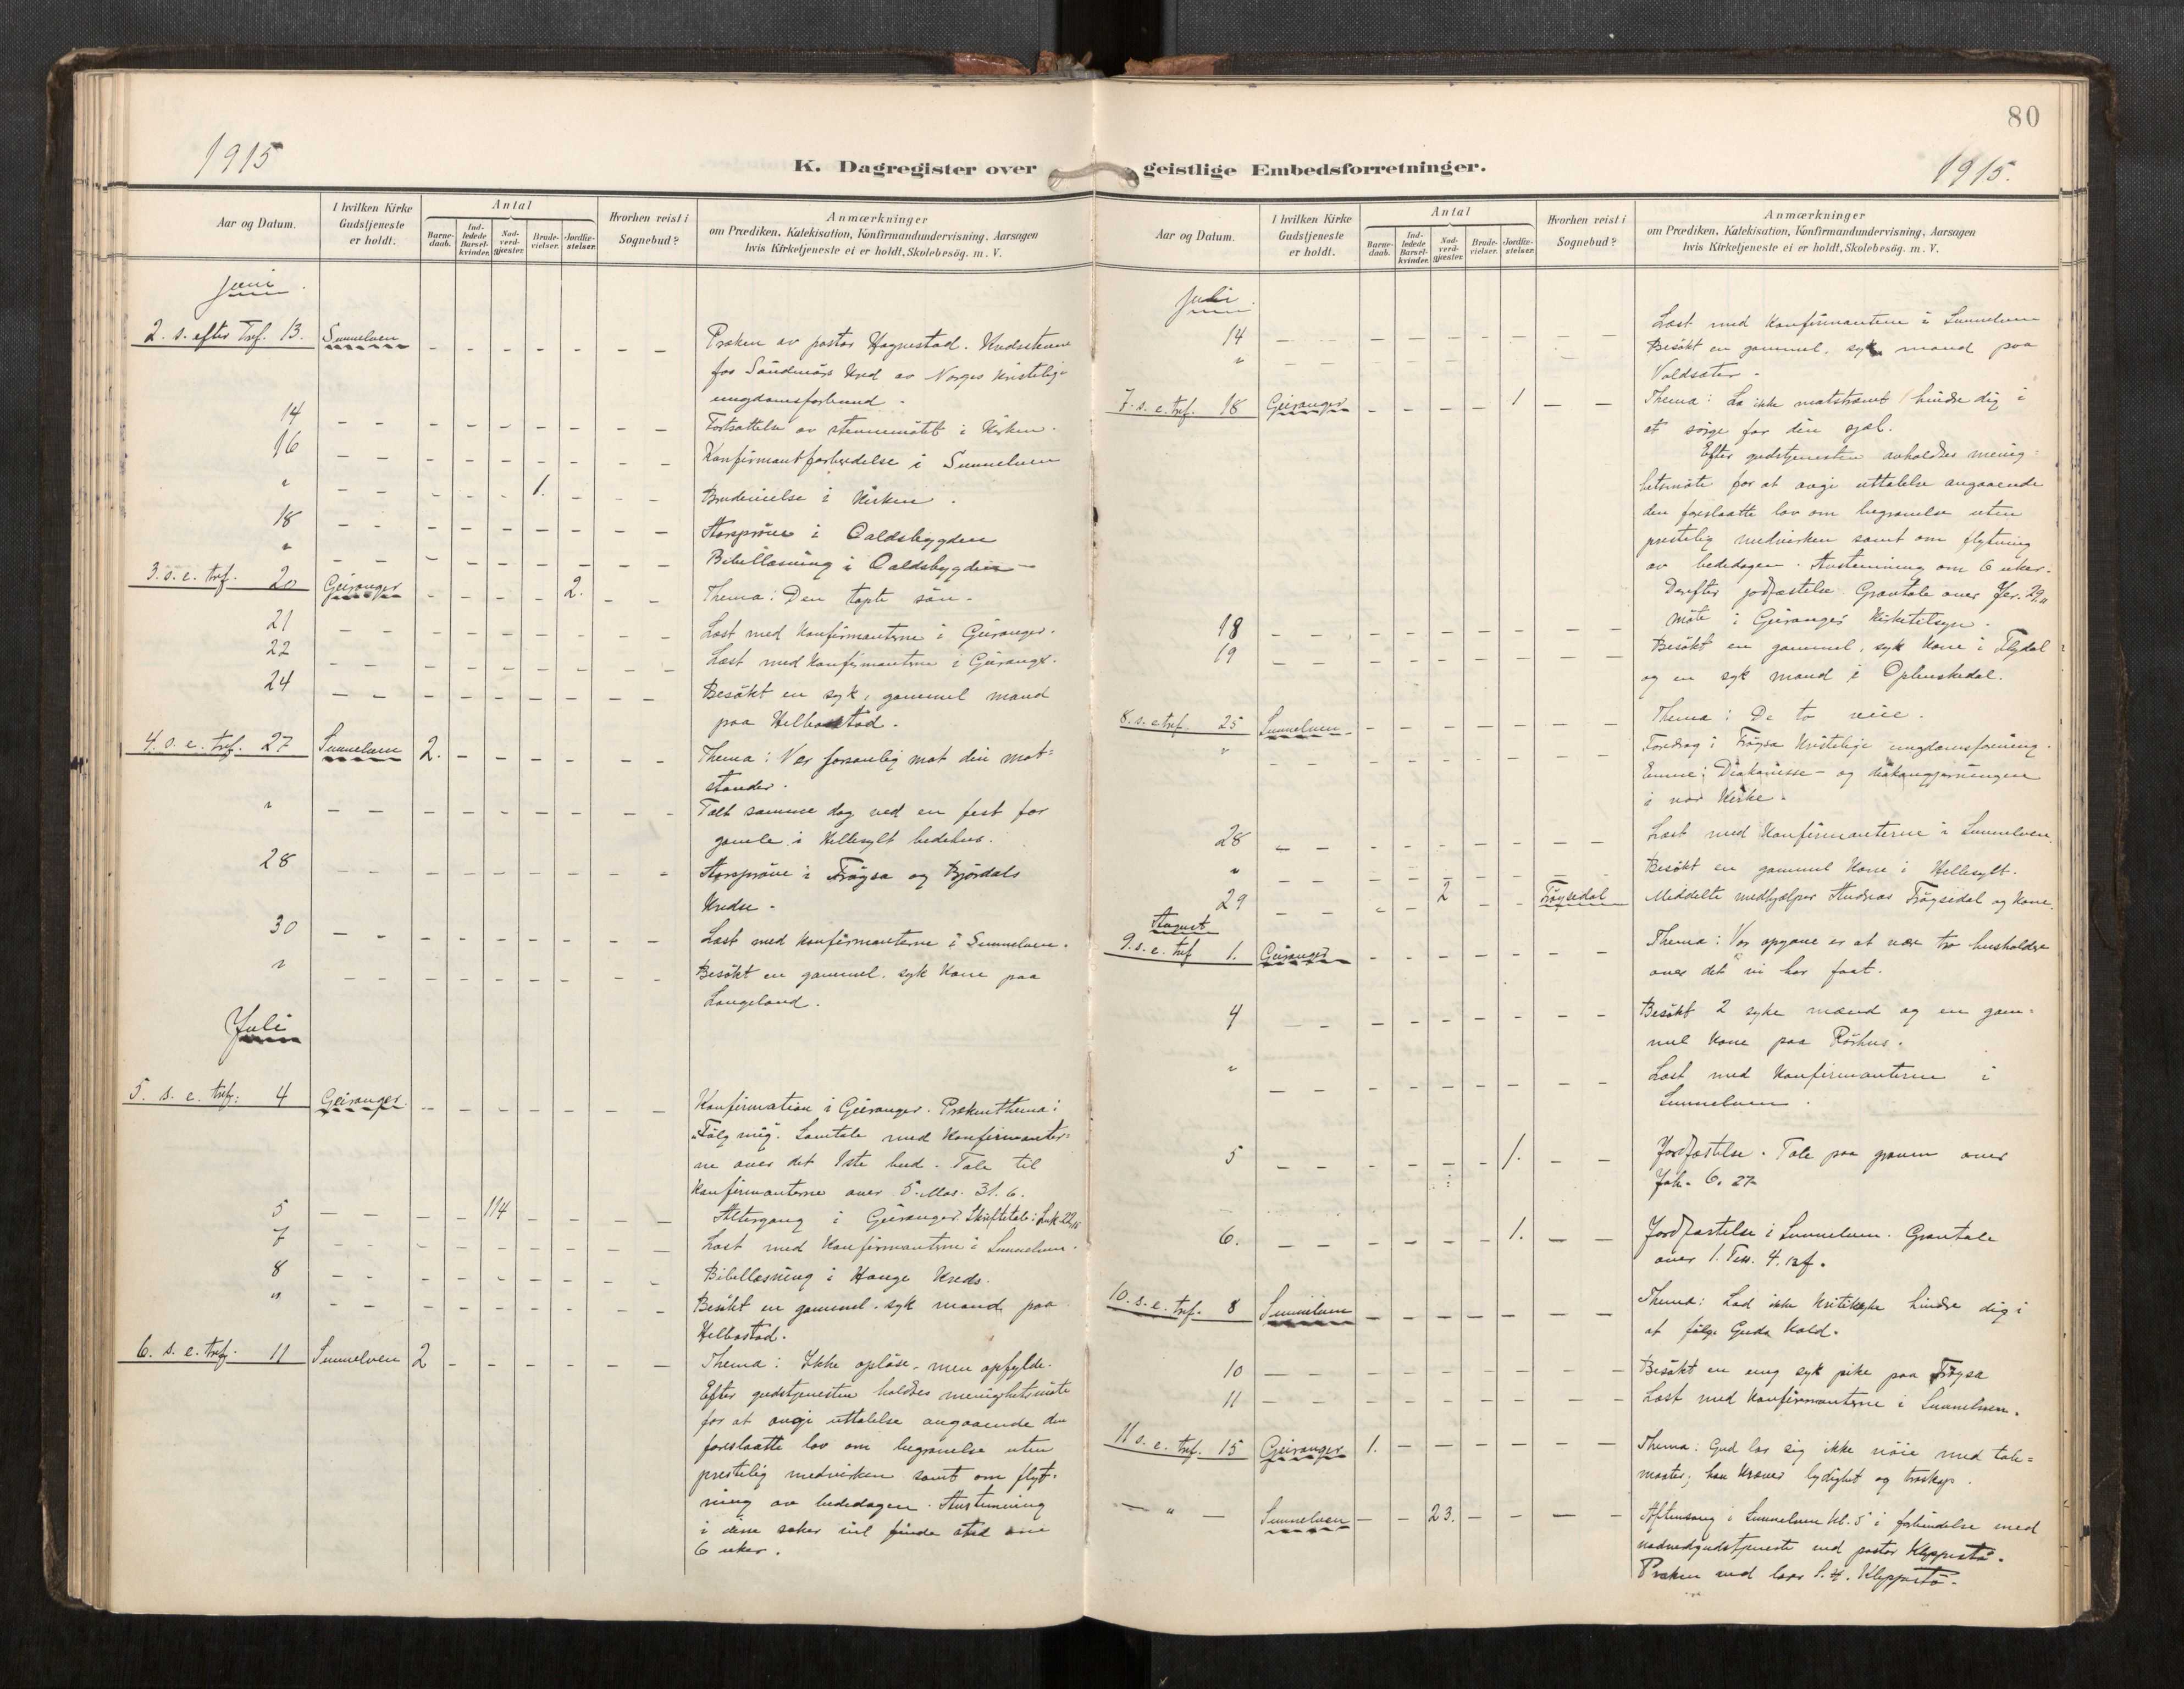 80
1915
K. Dagregister over geistlige Embedsforretninger.
1915.
Aar og Datum.
I hvilken Kirke Gudstjeneste er holdt.
Antal
Barnedaab.
Indledede Barselkvinder.
Nadverdgjæster.
Brudevielser.
Jordfæstelser.
Hvorhen reist i Sognebud?
Anmærkninger
om Prædiken, Katekisation, Konfirmandundervisning, Aarsagen
hvis Kirketjeneste ei er holdt, Skolebesög. m. V.
Juni
2. s. efter Tref. 13. Sunnelven – – – – – – – Præken av pastor Hagnestad. Kredsstevne
for Söndmörs Kred av Norges Kristelige
ungdomsforbund.
14 – – – – – – – – – Fortsættelse av stevnemötet i Kirken.
16 – – – – – – – – – Konfirmantforberedelse i Sunnelven
" – – – – – 1. – – – Brudevielse i Kirken.
18 – – – – – – – – – Storpröve i Oaldsbygden
" – – – – – – – – – Bibellæsning i Oaldsbygden –
3. s. e. tref. 20 Geiranger – – – – 2. – – Thema: Den tapte sön.
21 – – – – – – – – – Læst med Konfirmanterne i Geiranger.
22 – – – – – – – – – Læst med Konfirmanterne i Geiranger.
24 – – – – – – – – – Besökt en syk, gammel mand
paa Helbostad.
4. s. e. tref. 27 Sunnelven 2. – – – – – – Thema: Ver forsonlig mot din mot=
stander.
" – – – – – – – – – Talt samme dag ved en fest for
gamle i Hellesylt bedehus.
28 – – – – – – – – – Storpröve i Tröysa og Björdals
Kredse.
30 – – – – – – – – – Læst med Konfirmanterne i Sunnelven.
" – – – – – – – – – Besökt en gammel, syk Kone paa
Langeland.
Juli
5. s. e. tref. 4 Geiranger – – – – – – – Konfirmation i Geiranger. Prækenthema:
"Fölg mig". Samtale med Konfirmanter=
ne over det 1ste bud. Tale til
Konfirmanterne over 5. Mos. 31. 6.
5 – – – – 114 – – – – Altergang i Geiranger. Skriftetale: Luk 22,
7 – – – – – – – – – Læst med Konfirmanterne i Sunnelven.
8 – – – – – – – – – Bibellæsning i Hauge Kreds.
" – – – – – – – – – Besökt en gammel, syk mand paa
Helbostad.
6. s. e. tref. 11 Sunnelven 2 – – – – – – Thema: Ikke oplöse, men opfylde.
Efter gudstjenesten holdtes menighetsmöte
for at avgi uttalelse angaaende den
foreslaatte lov om begravelse uten
prestelig medvirken samt om flyt=
ning av bededagen. Avstemning
i disse saker vil finde sted om
6 uker.
Aar og Datum.
I hvilken Kirke Gudstjeneste er holdt.
Antal
Barnedaab.
Indledede Barselkvinder.
Nadverdgjæster.
Brudevielser.
Jordfæstelser.
Hvorhen reist i Sognebud?
Anmærkninger
om Prædiken, Katekisation, Konfirmandundervisning, Aarsagen
hvis Kirketjeneste ei er holdt, Skolebesög. m. V.
Juli
14 – – – – – – – – – Læst med Konfirmanterne i Sunnelven
" – – – Besökt en gammel, syk mand paa
Voldsæter.
7. s. e. tref. 18 Geiranger – – – – 1 – – Thema: La ikke matstrævet hindre dig i
at sörge for din sjæl.
Efter gudstjenesten avholdtes menig=
hetsmöte for at avgi uttalelse angaaende
den foreslaatte lov om begravelse uten
prestelig medvirken samt om flytning
av bededagen. Avstemning om 6 uker.
Derefter jordfæstelse. Gravtale over Jer. 29,11
18 – – – – – – – – – Möte i Geiranger Kirketilsyn.
19 – – – – – – – – – Besökt en gammel, syk Kone i Flydal
og en syk mand i Oplenskedal.
8. s. e. tref. 25 Sunnelven – – – – – – – Thema: De to veie.
" – – – – – – – – – Foredrag i Tröysa Kristelige ungdomsforening.
Emne: Diakonisse- og diakongjerningen
i vor Kirke.
28 – – – – – – – – – Læst med Konfirmanterne i Sunnelven.
" – – – – – – – – – Besökt en gammel Kone i Hellesylt.
29 – – – – 2 – – Tröysedal Meddelte medhjælper Andreas Tröysedal og Kone.
August
9. s. e. tref 1. Geiranger – – – – – – – Thema: Vor opgave er at være tro husholdere
over det vi har faat.
4 – – – – – – – – – Besökt 2 syke mænd og en gam=
mel Kone paa Rörhus.
" – – – – – – – – – Læst med Konfirmanterne i
Sunnelven.
5 – – – – – – 1. – – Jordfæstelse. Tale paa graven over
Joh. 6. 27
6. – – – – – – 1. – – Jordfæstelse i Sunnelven. Gravtale
over 1. Tess. 4. 13f.
10. s. e. tref. 8 Sunnelven – – – – – – – Thema: Lad ikke Kritikken hindre dig i
at fölge Guds Kald.
10 – – – – – – – – – Besökt en ung syk pike paa Tröysa
11 – – – – – – – – – Læst med Konfirmanterne i Sunnelven.
11 s. e. tref. 15 Geiranger 1. – – – – – – Thema: Gud lar sig ikke nöie med tale=
maater; han kræver lydighet og troskap.
– " – Sunnelven – – 23. – – – – Aftensang i Sunnelven kl. 5 i forbindelse med
nadverdgudstjeneste ved pastor Kleppestö.
Præken ved lærer S. H. Kleppestö.